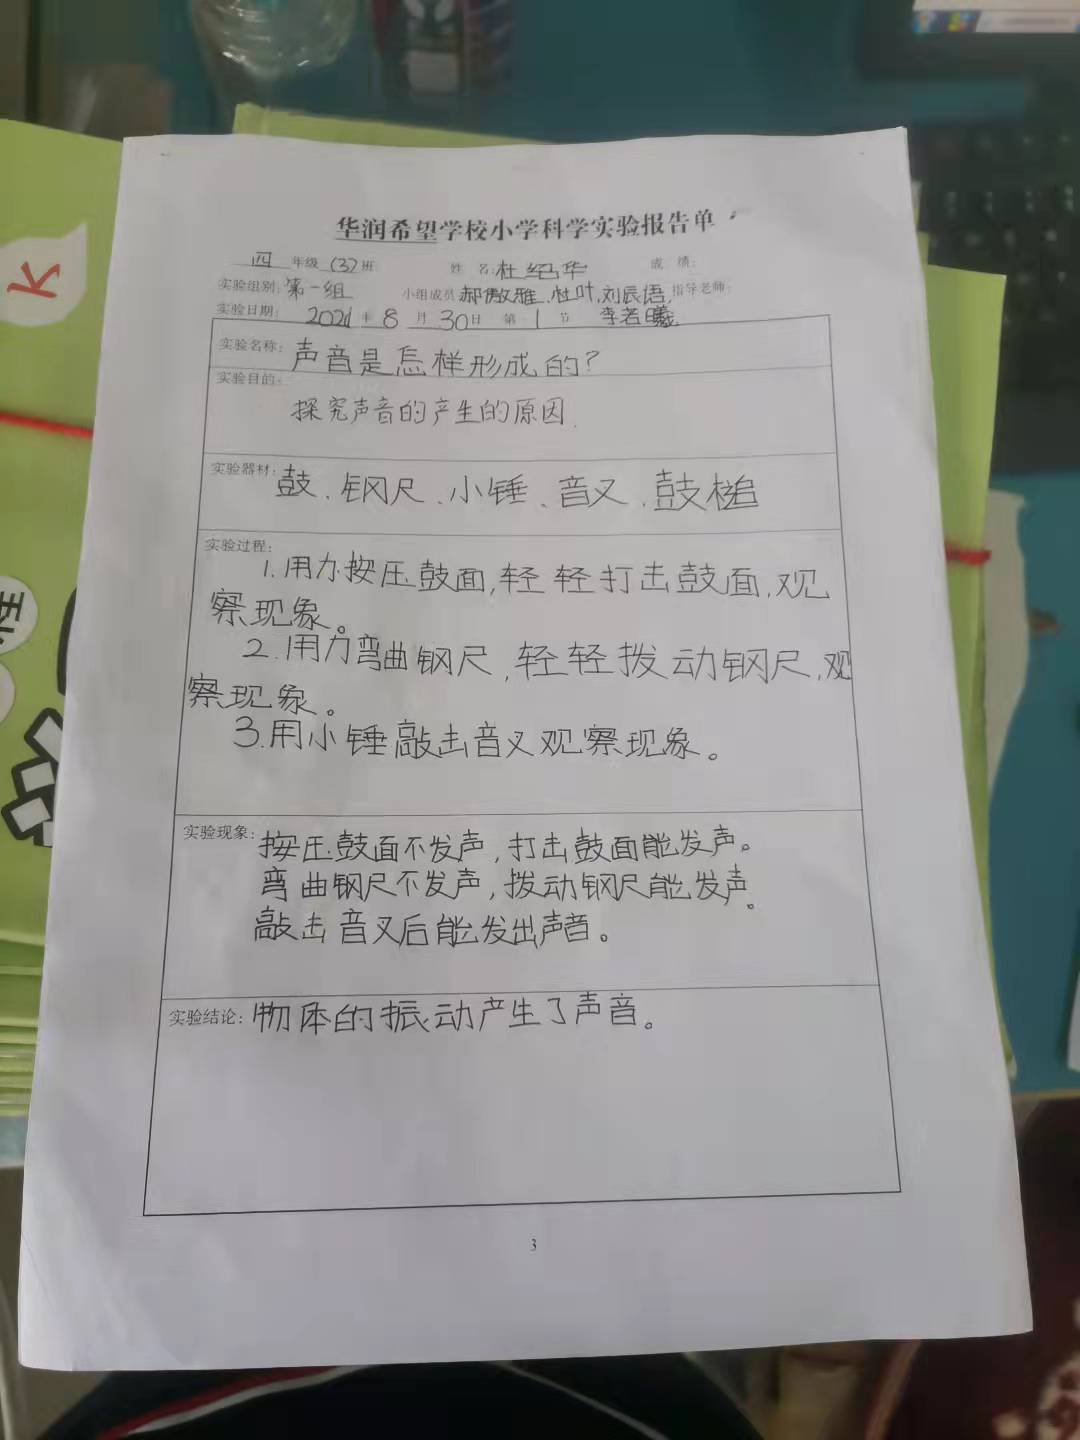 华润希望学校小学科学实验报告单
四年级(3)班 姓 名:杜绍华 成 绩:
实验组别:第一组 小组成员:郝傲雅、杜叶,刘辰语, 指导老师:
实验日期: 2021年8月30日 第1节 李若曦
实验名称:声音是怎样形成的?
实验目的:
探究声音的产生的原因.
实验器材:鼓、钢尺、小锤、音叉、鼓槌
实验过程:
1.用力按压鼓面,轻轻打击鼓面,观
察现象。
2.用力弯曲钢尺,轻轻拨动钢尺,观
察现象。
3.用小锤敲击音叉观察现象。
实验现象:按压鼓面不发声,打击鼓面能发声。
弯曲钢尺不发声,拨动钢尺能发声。
敲击音叉后能发出声音。
实验结论:物体的振动产生了声音。
3
K